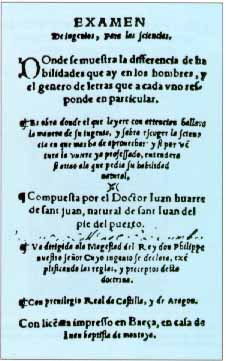 EXAMEN
De ingenios, para las sciencias.
Donde se muestra la differencia de ha
bilidades que ay en los hombres, y
el genero de letras que a cada uno res
ponde en particular.
Es obra donde el que leyere con attencion hallara
la manera de su ingenio, y sabra escoger la scien
cia en que mas ha de aprovechar: y si por vē
tura la uviere ya professado, entendera
si atino a la que pedia su habilidad
natural.
Compuesta por el Doctor Iuan huarte
de sant juan, natural de sant Iuan del
pie del puerto.
Va dirigida ala Magestad del Rey don Philippe
nuestro señor. Cuyo ingenio se declara, exē
plificando las reglas, y preceptos desta
doctrina.
Con previlegio Real de Castilla, y de Aragon.
Con licēcia impresso en Baeça, en casa de
Iuan baptista de montoya.